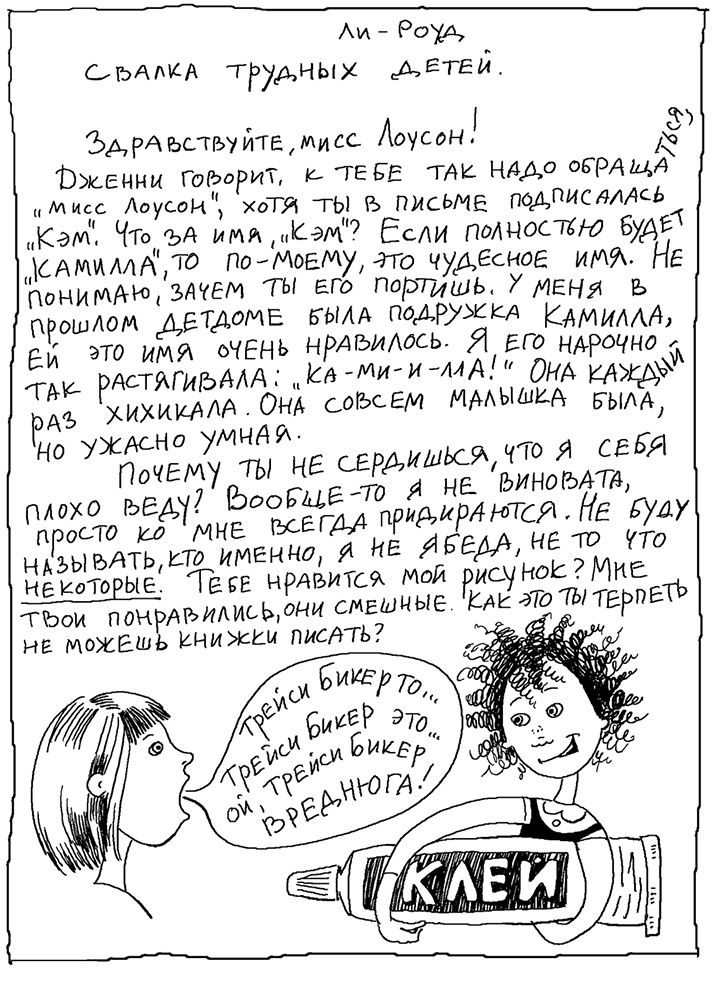 Ли-Роуд
Свалка трудных детей.
Здравствуйте, мисс Лоусон!
Дженни говорит, к тебе так надо обращаться,
„мисс Лоусон", хотя ты в письме подписалась
„Кэм". Что за имя, „Кэм"? Если полностью будет
„Камилла", то по-моему, это чудесное имя. Не
понимаю, зачем ты его портишь. У меня в
прошлом детдоме была подружка Камилла,
ей это имя очень нравилось. Я его нарочно
так растягивала: „Ка-ми-и-лла!" Она каждый
раз хихикала. Она совсем малышка была,
но ужасно умная.
Почему ты не сердишься, что я себя
плохо веду? Вообще-то я не виновата,
просто ко мне всегда придираются. Не буду
называть, кто именно, я не ябеда, не то что
некоторые. Тебе нравится мой рисунок? Мне
твои понравились, они смешные. Как это ты терпеть
не можешь книжки писать?
Трейси Бикер то...
Трейси Бикер это...
ой, Трейси Бикер
вреднюга!
КЛЕЙ